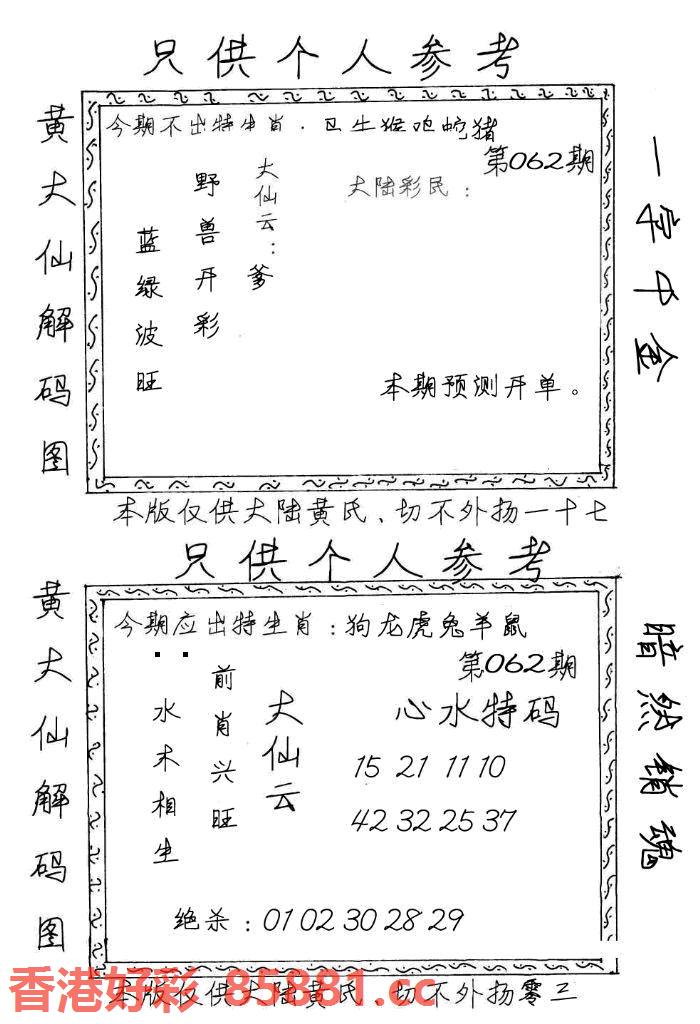 只供个人参考
黄大仙解码图
今期不出特生肖．卫生猴鸡蛇猪
第062期
大陆彩民：
大仙云：爹
野兽开彩
蓝绿波旺
本期预测开单。
一字千金
本版仅供大陆黄氏、切不外扬一十七
只供个人参考
黄大仙解码图
今期应出特生肖：狗龙虎兔羊鼠
第062期
心水特码
大仙云
前肖兴旺
水木相生
15 21 11 10
42 32 25 37
绝杀：01 02 30 28 29
暗然销魂
本版仅供大陆黄氏、切不外扬零三
香港好彩 85881.cc